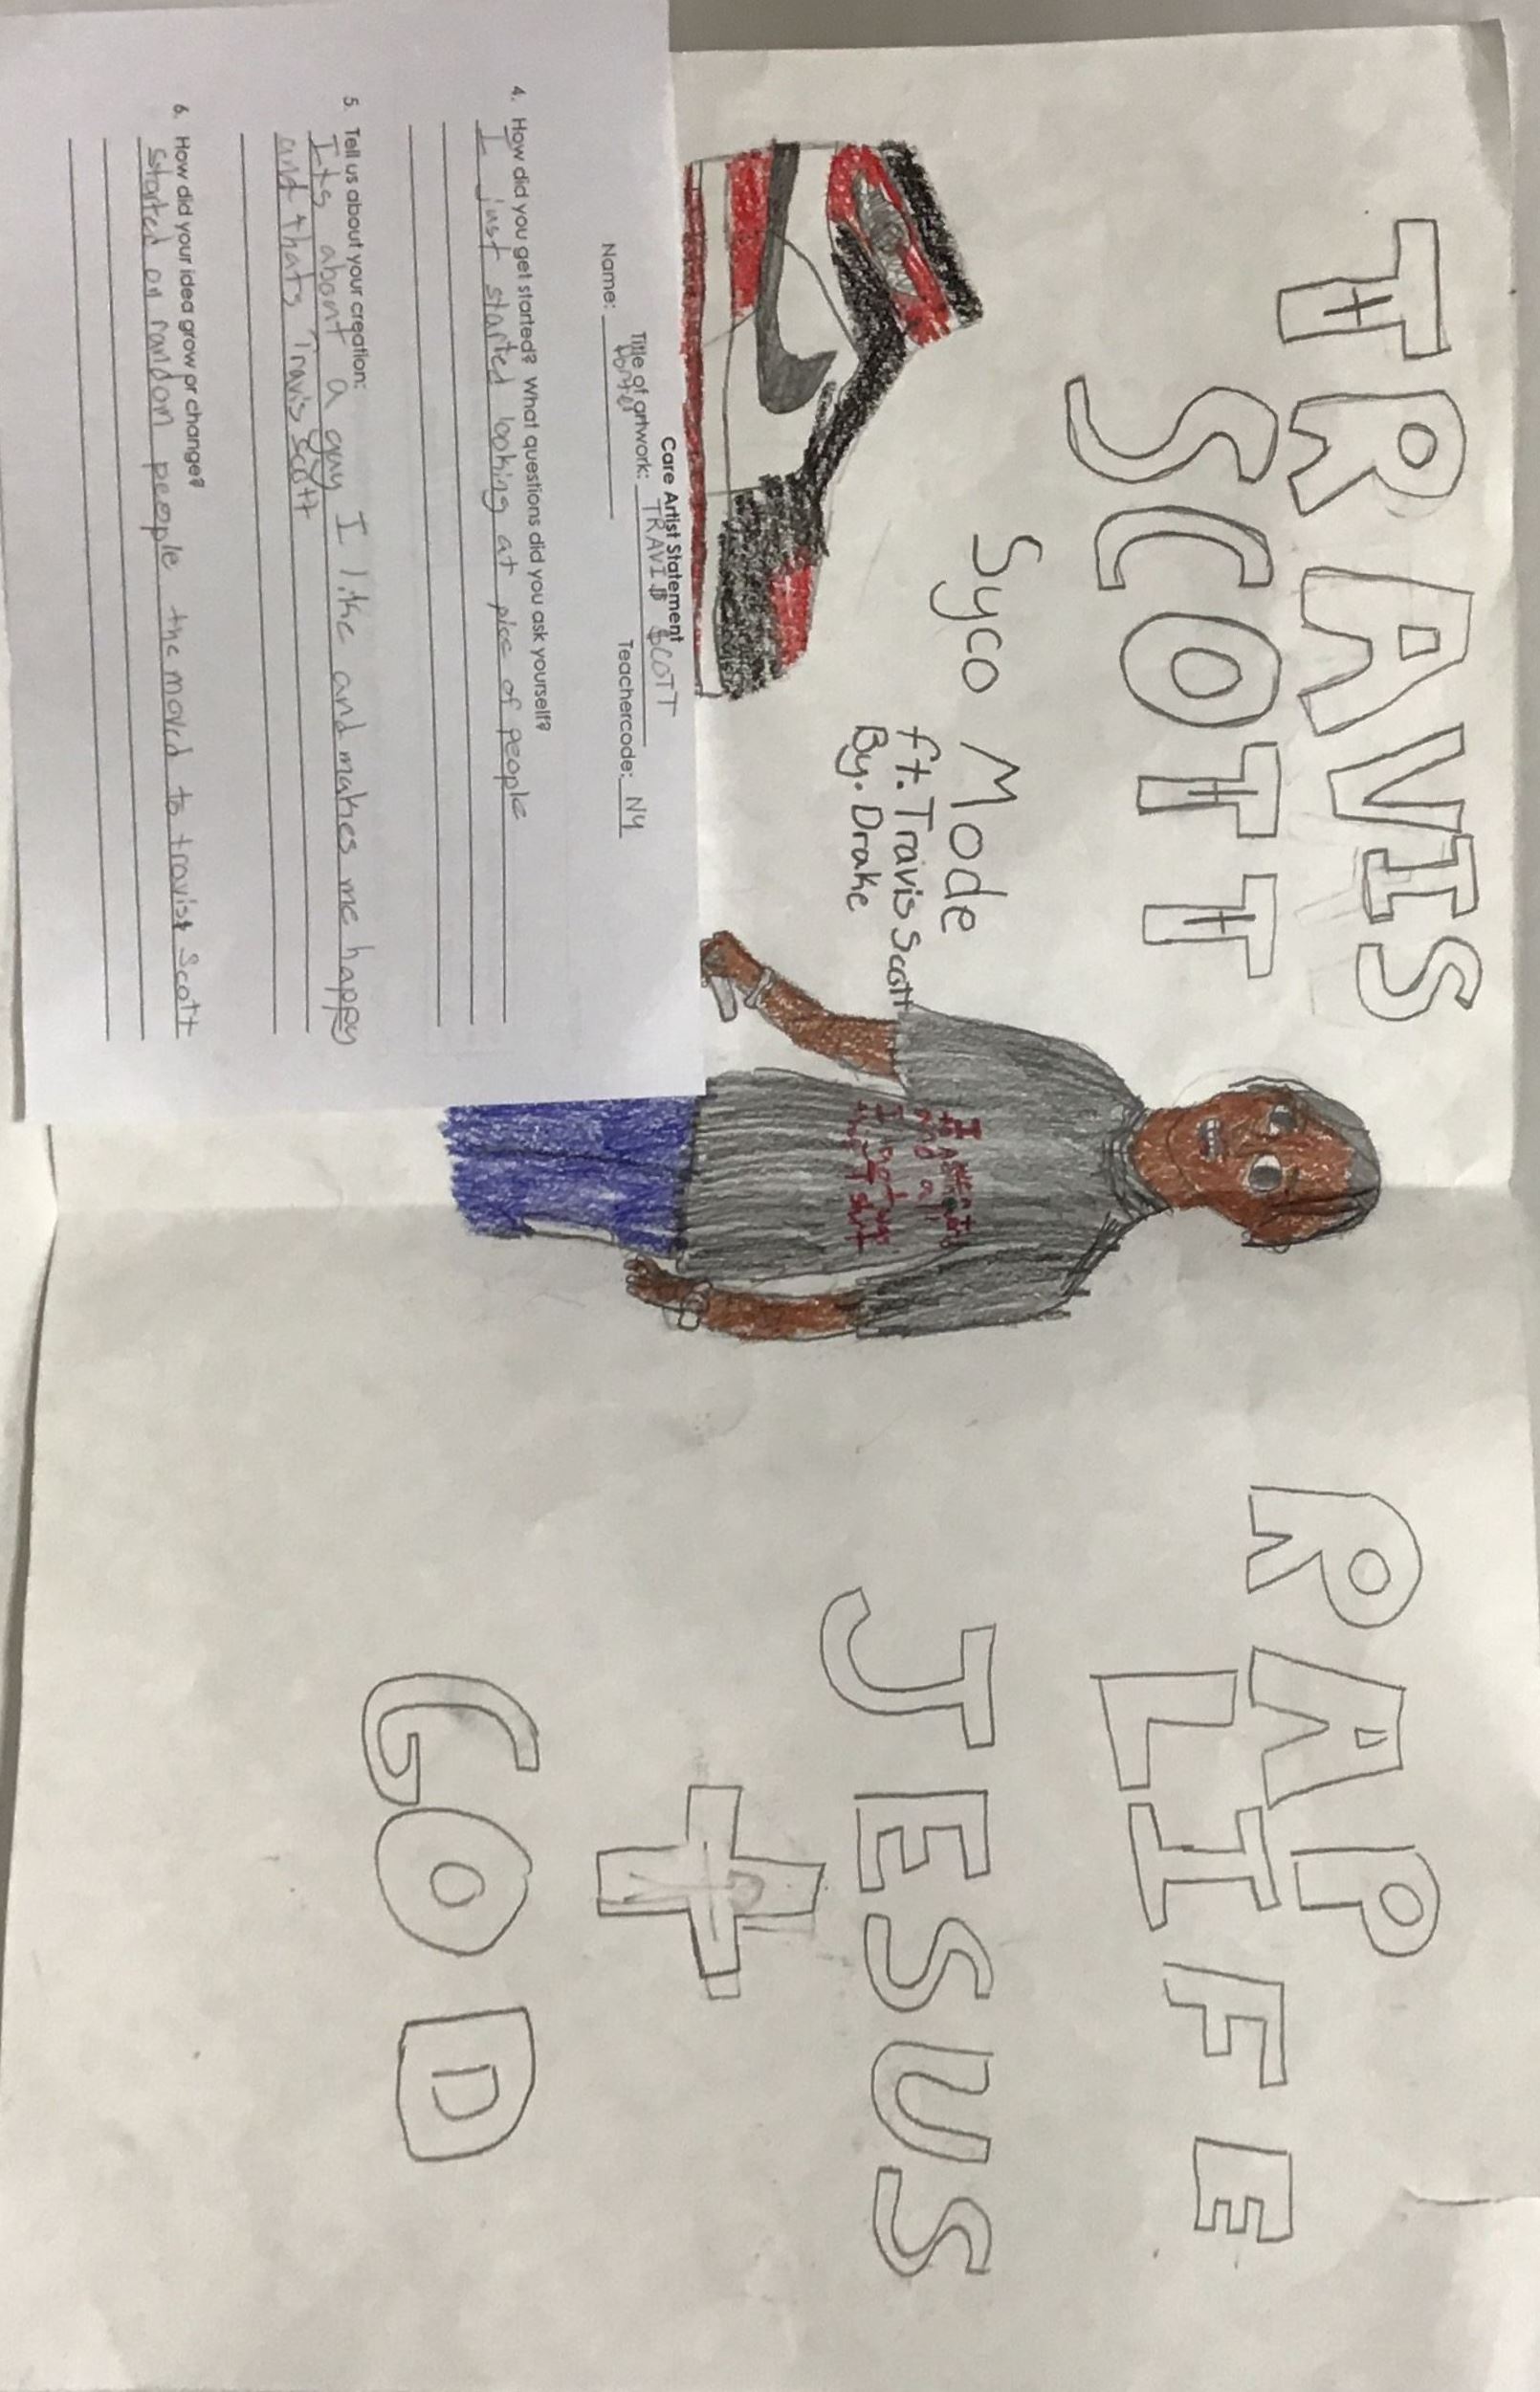 TRAVIS
SCOTT
Syco Mode
ft. Travis Scott
By. Drake
RAP
LIFE
JESUS
GOD
Care Artist Statement
Title of artwork: TRAVI$ $COTT
Name: Teachercode: N4
4. How did you get started? What questions did you ask yourself?
I just started looking at pics of people
5. Tell us about your creation:
Its about a guy I like and makes me happy
and thats Travis Scott
6. How did your idea grow or change?
started on random people the moved to travist Scott